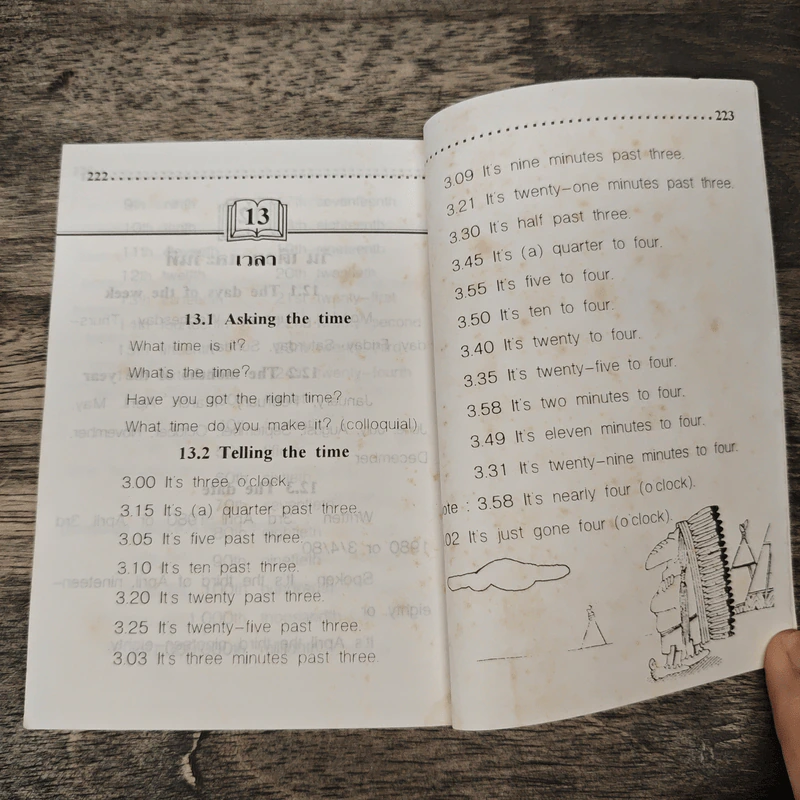 222
13
เวลา
13.1 Asking the time
What time is it?
What's the time?
Have you got the right time?
What time do you make it? (colloquial)
13.2 Telling the time
3.00 It's three o'clock.
3.15 It's (a) quarter past three.
3.05 It's five past three.
3.10 It's ten past three.
3.20 It's twenty past three.
3.25 It's twenty-five past three.
3.03 It's three minutes past three.
223
3.09 It's nine minutes past three.
3.21 It's twenty-one minutes past three.
3.30 It's half past three.
3.45 It's (a) quarter to four.
3.55 It's five to four.
3.50 It's ten to four.
3.40 It's twenty to four.
3.35 It's twenty-five to four.
3.58 It's two minutes to four.
3.49 It's eleven minutes to four.
3.31 It's twenty-nine minutes to four.
ote : 3.58 It's nearly four (o'clock).
02 It's just gone four (o'clock).